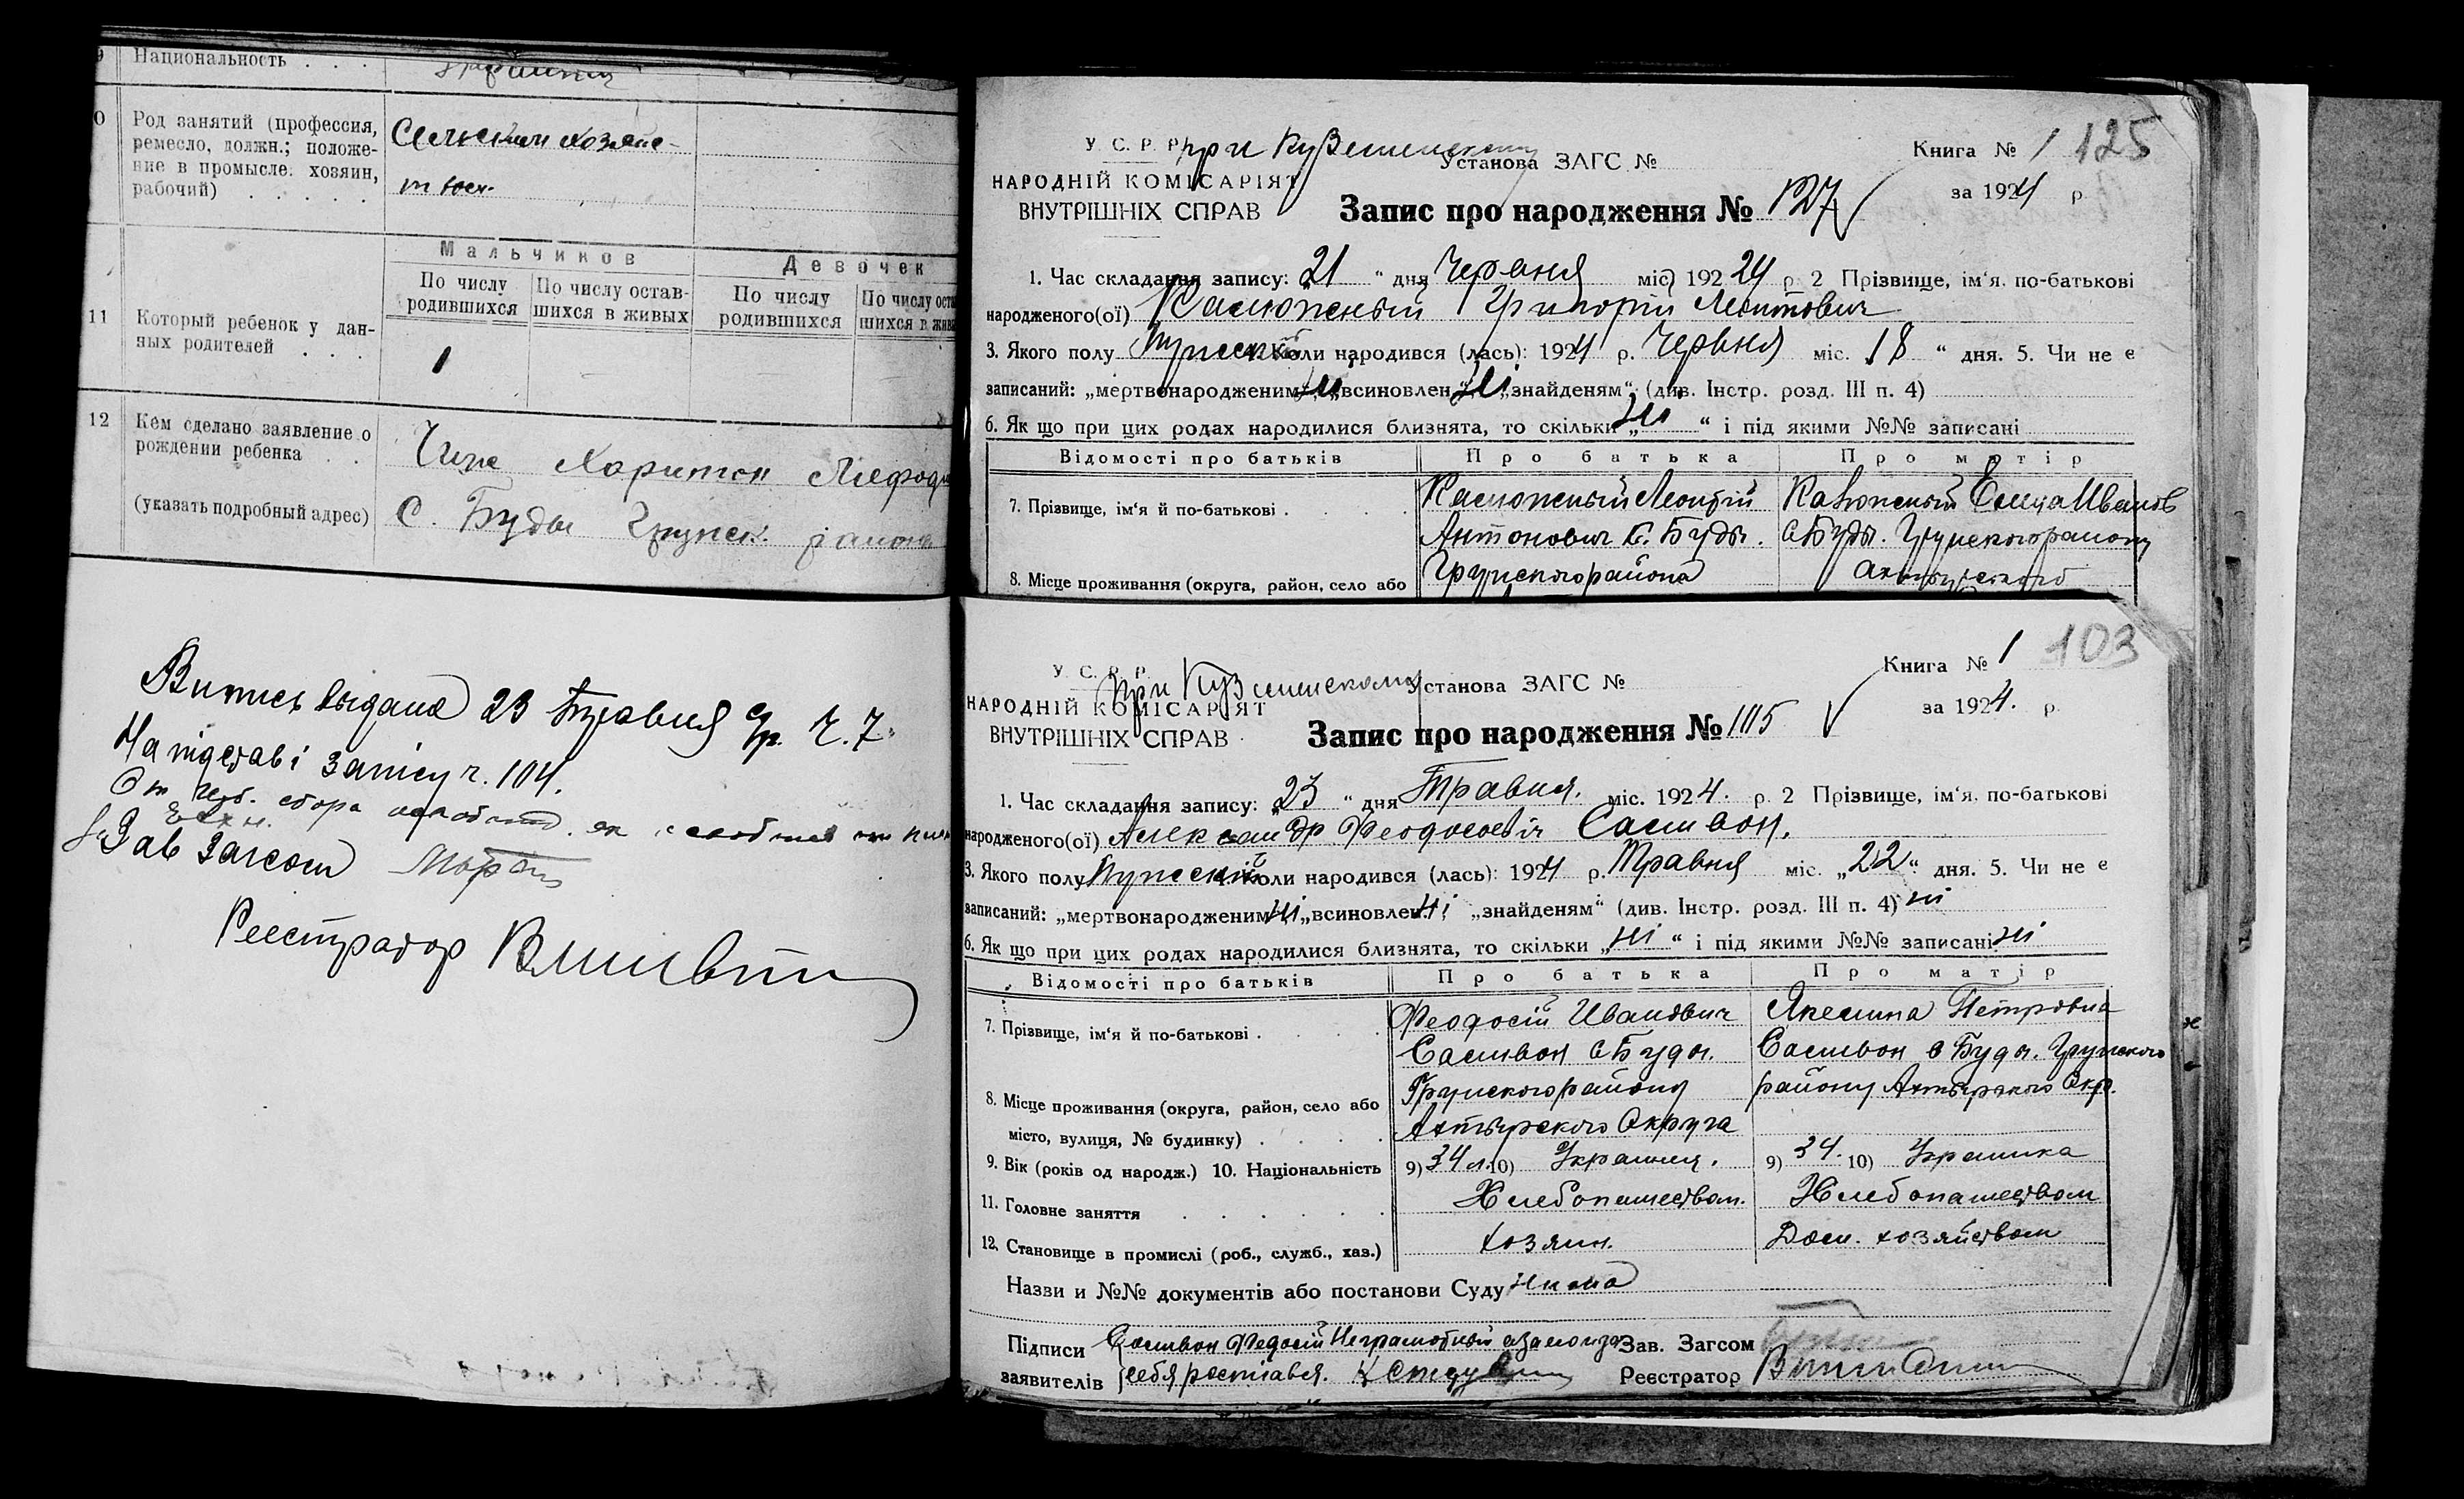 9 Национальность . . .
10 Род занятий (профессия,
ремесло, должн.; положе-
ние в промысле: хозяин,
рабочий) . . . . .
Сельским хозяйс-
твом.
11 Который ребенок у дан-
ных родителей . . .
Мальчиков
Девочек
По числу родившихся
По числу остав-
шихся в живых
По числу родившихся
По числу оста
шихся в жив
1
12 Кем сделано заявление о
рождении ребенка . .
(указать подробный адрес)
Харитон
С. Буды Грунск. района
Випись выдана 23 Травня с/р. Ч. 7
На підставі запісу ч. 104.
От сбора
Зав Загсом
Реестратор
У. С. Р. Р.
при Куземинском
Установа ЗАГС №
Книга № 1 125
НАРОДНІЙ КОМІСАРІЯТ
ВНУТРІШНІХ СПРАВ
за 1924 р.
Запис про народження № 127
1. Час складання запису: „21“ дня Червня міс. 192 24 р. 2 Прізвище, ім‘я. по-батькові
народженого(ої) Калюжный Григорій Леонтович
3. Якого полу Мужскій 4. Коли народився (лась): 1924 р. Червня міс. 18 “ дня. 5. Чи не є
записаний: „мертвонародженим“ ні, „всиновлен“ ні, „знайденям“ (див. Інстр. розд. III п. 4)
6. Як що при цих родах народилися близнята, то скільки „ні“ і під якими №№ записані
Відомості про батьків
Про батька
Про мотір
7. Прізвище, ім‘я й по-батькові . . . .
Калюжный Леонтій
Антонович С. Буды.
Грунского района
Калюжный Иванов
с Буды. Грунского району
8. Місце проживання (округа, район, село або
У. С. Р. Р.
при Куземинском
Установа ЗАГС №
Книга № 1 103
НАРОДНІЙ КОМІСАРІЯТ
ВНУТРІШНІХ СПРАВ
за 1924. р.
Запис про народження № 105
1. Час складання запису: „23“ дня Травня. міс. 1924. р. 2 Прізвище, ім‘я. по-батькові
народженого(ої) Александр Феодосовіч
3. Якого полу Мужскій 4. Коли народився (лась): 1924 р. Травня міс. „22“ дня. 5. Чи не є
записаний: „мертвонародженим“ ні, „всиновлен“ ні, „знайденям“ (див. Інстр. розд. III п. 4) ні
6. Як що при цих родах народилися близнята, то скільки „ні“ і під якими №№ записані ні
Відомості про батьків
Про батька
Про матір
7. Прізвище, ім‘я й по-батькові . . . .
Феодосій Иванович
с Буды.
Грунского району
Ахтырского Округа
Петровна
с Буды. Грунского
району Ахтырского Окр.
8. Місце проживання (округа, район, село або
місто, вулиця, № будинку) . . . .
9. Вік (років од народж.) 10. Національність
9) 34 л. 10) Украинец.
9) 34. 10) Украинка
11. Головне заняття . . . . . .
Хлебопашеством.
Хлебопашеством
12. Становище в промислі (роб., служб., хаз.)
хозяин.
Дом. хозяйством
Назви и №№ документів або постанови Суду нима
Підписи
заявителів
Федосій Неграмотный а за него и за
себя
Зав. Загсом
Реєстратор